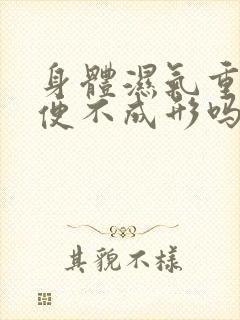 身體濕氣重
便不成形吗
其貌不樣